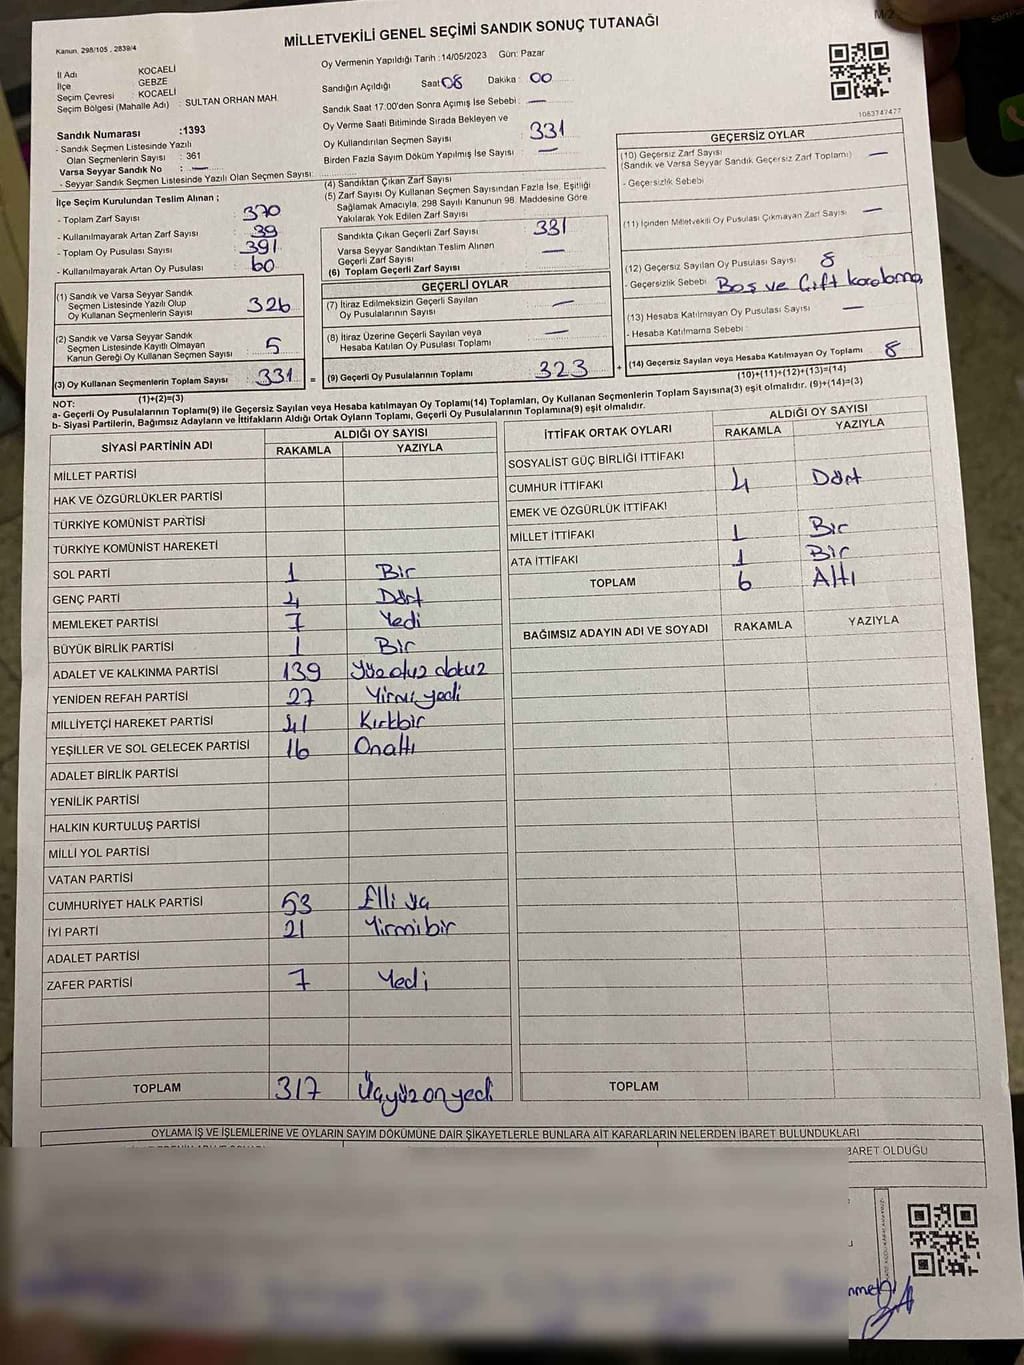 Kanun, 298/105 , 2839/4
MİLLETVEKİLİ GENEL SEÇİMİ SANDIK SONUÇ TUTANAĞI
İl Adı : KOCAELİ
İlçe : GEBZE
Seçim Çevresi : KOCAELİ
Seçim Bölgesi (Mahalle Adı) : SULTAN ORHAN MAH.
Sandık Numarası :1393
- Sandık Seçmen Listesinde Yazılı
Olan Seçmenlerin Sayısı : 361
Varsa Seyyar Sandık No : —
- Seyyar Sandık Seçmen Listesinde Yazılı Olan Seçmen Sayısı:
Oy Vermenin Yapıldığı Tarih :14/05/2023 Gün: Pazar
Sandığın Açıldığı Saat 08 Dakika : 00
Sandık Saat 17:00'den Sonra Açımış İse Sebebi : —
Oy Verme Saati Bitiminde Sırada Bekleyen ve
Oy Kullandırılan Seçmen Sayısı 331
Birden Fazla Sayım Döküm Yapılmış İse Sayısı : —
1083747477
İlçe Seçim Kurulundan Teslim Alınan ;
- Toplam Zarf Sayısı : 370
- Kullanılmayarak Artan Zarf Sayısı : 39
- Toplam Oy Pusulası Sayısı : 391
- Kullanılmayarak Artan Oy Pusulası : 60
(1) Sandık ve Varsa Seyyar Sandık
Seçmen Listesinde Yazılı Olup
Oy Kullanan Seçmenlerin Sayısı : 326
(2) Sandık ve Varsa Seyyar Sandık
Seçmen Listesinde Kayıtlı Olmayan
Kanun Gereği Oy Kullanan Seçmen Sayısı : 5
(3) Oy Kullanan Seçmenlerin Toplam Sayısı : 331
(1)+(2)=(3)
(4) Sandıktan Çıkan Zarf Sayısı
(5) Zarf Sayısı Oy Kullanan Seçmen Sayısından Fazla İse, Eşitliği
Sağlamak Amacıyla, 298 Sayılı Kanunun 98. Maddesine Göre
Yakılarak Yok Edilen Zarf Sayısı :
Sandıkta Çıkan Geçerli Zarf Sayısı : 331
Varsa Seyyar Sandıktan Teslim Alınan
Geçerli Zarf Sayısı : —
(6) Toplam Geçerli Zarf Sayısı :
GEÇERLİ OYLAR
(7) İtiraz Edilmeksizin Geçerli Sayılan
Oy Pusulalarının Sayısı : —
(8) İtiraz Üzerine Geçerli Sayılan veya
Hesaba Katılan Oy Pusulası Toplamı : —
= (9) Geçerli Oy Pusulalarının Toplamı : 323
GEÇERSİZ OYLAR
(10) Geçersiz Zarf Sayısı
(Sandık ve Varsa Seyyar Sandık Geçersiz Zarf Toplamı) : —
- Geçersizlik Sebebi :
(11) İçinden Milletvekili Oy Pusulası Çıkmayan Zarf Sayısı : —
(12) Geçersiz Sayılan Oy Pusulası Sayısı : 8
- Geçersizlik Sebebi : Boş ve Çift karalama
(13) Hesaba Katılmayan Oy Pusulası Sayısı : —
- Hesaba Katılmama Sebebi :
+ (14) Geçersiz Sayılan veya Hesaba Katılmayan Oy Toplamı : 8
(10)+(11)+(12)+(13)=(14)
NOT:
a- Geçerli Oy Pusulalarının Toplamı(9) ile Geçersiz Sayılan veya Hesaba katılmayan Oy Toplamı(14) Toplamları, Oy Kullanan Seçmenlerin Toplam Sayısına(3) eşit olmalıdır. (9)+(14)=(3)
b- Siyasi Partilerin, Bağımsız Adayların ve İttifakların Aldığı Ortak Oyların Toplamı, Geçerli Oy Pusulalarının Toplamına(9) eşit olmalıdır.
SİYASİ PARTİNİN ADI ALDIĞI OY SAYISI
RAKAMLA YAZIYLA
MİLLET PARTİSİ
HAK VE ÖZGÜRLÜKLER PARTİSİ
TÜRKİYE KOMÜNİST PARTİSİ
TÜRKİYE KOMÜNİST HAREKETİ
SOL PARTİ 1 Bir
GENÇ PARTİ 4 Dört
MEMLEKET PARTİSİ 7 Yedi
BÜYÜK BİRLİK PARTİSİ 1 Bir
ADALET VE KALKINMA PARTİSİ 139 Yüzotuz dokuz
YENİDEN REFAH PARTİSİ 27 Yirmi yedi
MİLLİYETÇİ HAREKET PARTİSİ 41 Kırkbir
YEŞİLLER VE SOL GELECEK PARTİSİ 16 Onaltı
ADALET BİRLİK PARTİSİ
YENİLİK PARTİSİ
HALKIN KURTULUŞ PARTİSİ
MİLLİ YOL PARTİSİ
VATAN PARTİSİ
CUMHURİYET HALK PARTİSİ 53 Elli
İYİ PARTİ 21 Yirmibir
ADALET PARTİSİ
ZAFER PARTİSİ 7 Yedi
TOPLAM 317 Üçyüz onyedi
İTTİFAK ORTAK OYLARI ALDIĞI OY SAYISI
RAKAMLA YAZIYLA
SOSYALİST GÜÇ BİRLİĞİ İTTİFAKI
CUMHUR İTTİFAKI 4 Dört
EMEK VE ÖZGÜRLÜK İTTİFAKI
MİLLET İTTİFAKI 1 Bir
ATA İTTİFAKI 1 Bir
TOPLAM 6 Altı
BAĞIMSIZ ADAYIN ADI VE SOYADI RAKAMLA YAZIYLA
TOPLAM
OYLAMA İŞ VE İŞLEMLERİNE VE OYLARIN SAYIM DÖKÜMÜNE DAİR ŞİKAYETLERLE BUNLARA AİT KARARLARIN NELERDEN İBARET BULUNDUKLARI
BARET OLDUĞU